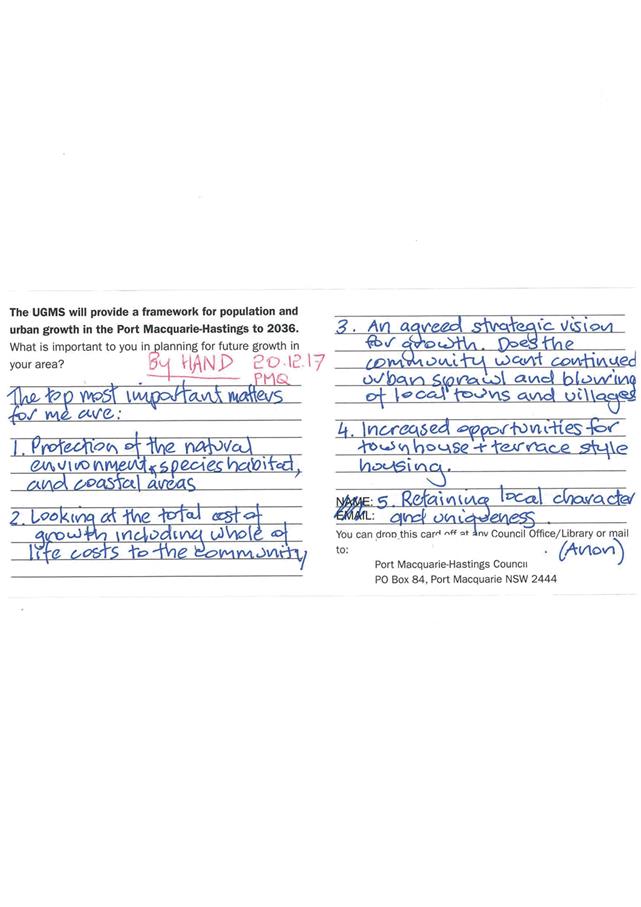 The UGMS will provide a framework for population and
urban growth in the Port Macquarie-Hastings to 2036.
What is important to you in planning for future growth in
your area?
By HAND 20.12.17
PMQ
The top most important matters
for me are:
1. Protection of the natural
environment, species habitat,
and coastal areas
2. Looking at the total cost of
growth including whole of
life costs to the community
3. An agreed strategic vision
for growth. Does the
community want continued
urban sprawl and blurring
of local towns and villages
4. Increased opportunities for
townhouse + terrace style
housing.
NAME: 5. Retaining local character
EMAIL: and uniqueness.
You can drop this card off at any Council Office/Library or mail
to:
(Anon)
Port Macquarie-Hastings Council
PO Box 84, Port Macquarie NSW 2444